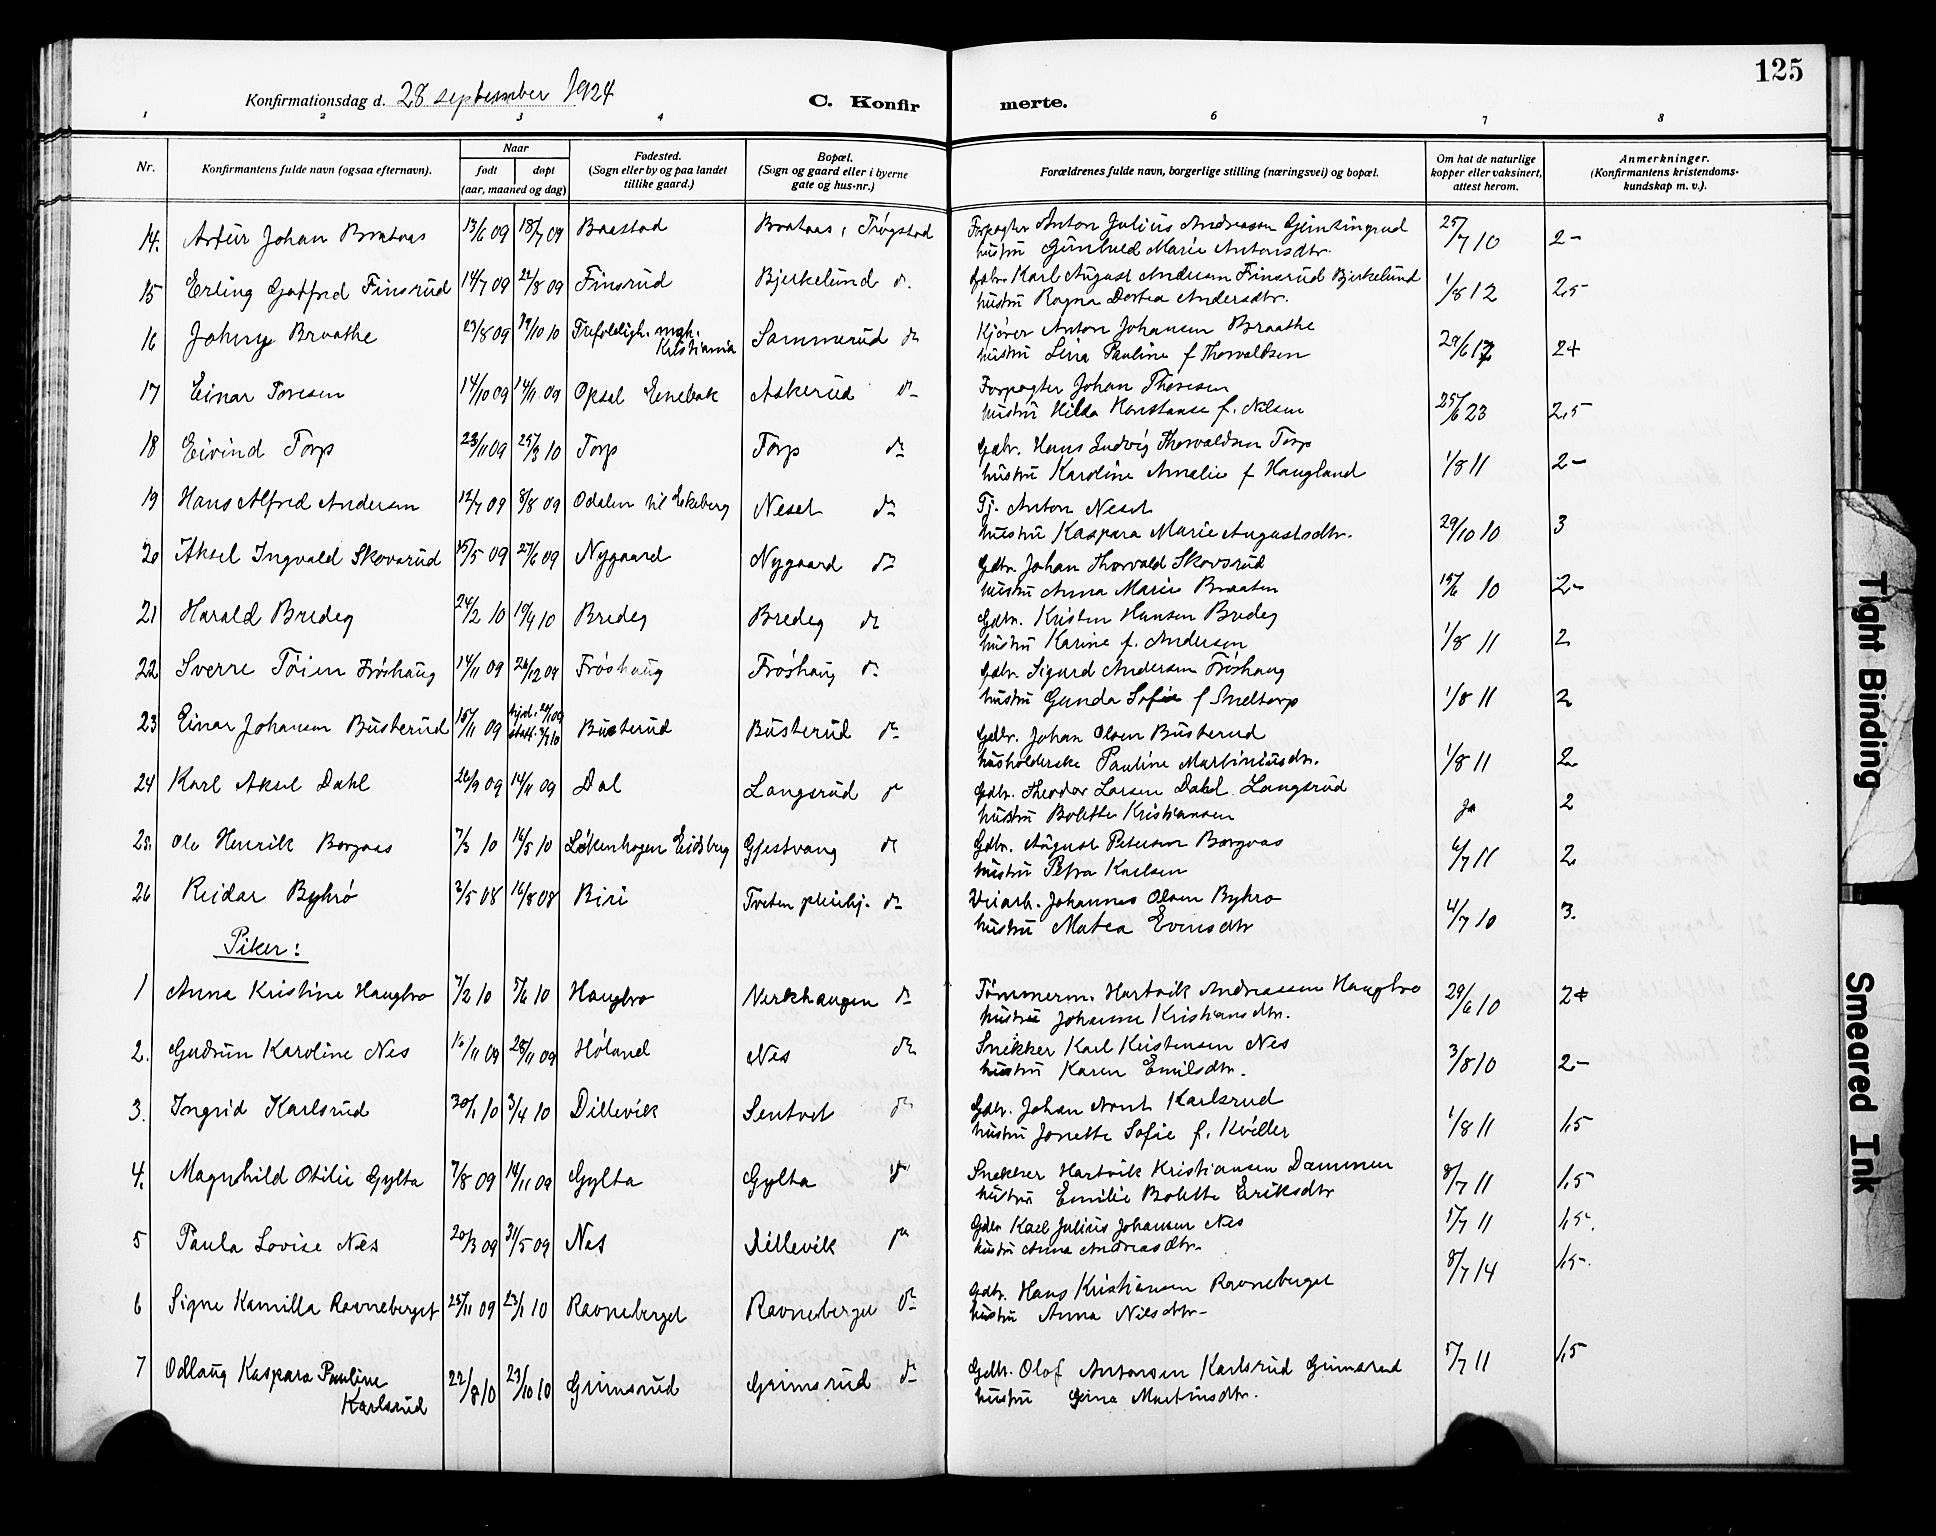 125
Konfirmationsdag d. 28 september 1924 C. Konfirmerte.
1 2 3 4 6 7 8
Nr. Konfirmantens fulde navn (ogsaa efternavn). Naar født døpt (aar, maaned og dag) Fødested. (Sogn eller by og paa landet tillike gaard.) Bopæl. (Sogn og gaard eller i byerne gate og hus-nr.) Forældrenes fulde navn, borgerlige stilling (næringsvei) og bopæl. Om hat de naturlige kopper eller vaksinert, attest herom. Anmerkninger. (Konfirmantens kristendomskundskap m. v.).
14. Artur Johan Brataas 13/6 09 18/7 09 Baastad Brataas, Trøgstad Forpagter Anton Julius Andreassen 25/7 10 2-
hustru Gunhild Marie Antonsdtr.
15 Erling Gotfred Finsrud 14/7 09 22/8 09 Finsrud Bjerkelund do. Gdbr. Karl August Andersen Finsrud Bjerkelund 1/8 12 2,5
hustru Ragna Dortea Andersdtr.
16 Johny Braathe 23/8 09 19/10 10 Trefoldigh. mgh. Kristiania Sommerud do Kjører Anton Johansen Braathe 29/6 17 2+
hustru Lina Pauline f Thorvaldsen
17 Einar Toresen 14/10 09 14/11 09 Opsal Enebak Askerud do Forpagter Johan Thoresen
hustru Hilda Konstanse f. Nilsen 25/6 23 2,5
18 Eivind Torp 23/11 09 25/3 10 Torp Torp do Gdbr. Hans Ludvig Thorvaldsen Torp
hustru Karoline Amalie f Haugland 1/8 11 2-
19 Hans Alfred Andersen 12/7 09 8/8 09 Odalen til Ekeberg Neset do Tj. Anton Neset
hustru Kaspara Marie Augustsdtr. 29/10 10 3
20 Aksel Ingvald Skovsrud 15/5 09 27/6 09 Nygaard Nygaard do Gdbr. Johan Thorvald Skovsrud
hustru Anna Marie Braaten 15/6 10 2-
21 Harald Bredeg 24/2 10 19/4 10 Bredeg Bredeg do Gdbr. Kristen Hansen Bredeg
hustru Karine f. Andersen 1/8 11 2
22 Sverre Töien Frøshaug 14/11 09 26/12 09 Frøshaug Frøshaug do Gdbr. Sigurd Andersen Frøshaug
hustru Gunda Sofie f Sneltorp 1/8 11 2
23 Einar Johansen Busterud 15/11 09 Busterud Busterud do Gdbr. Johan Olsen Busterud
husholderske Pauline Martiniusdtr. 1/8 11 2
24 Karl Aksel Dahl 26/9 09 14/11 09 Dal Langsrud do Gdbr. Theodor Larsen Dahl Langsrud
hustru Bolette Kristiansen ja 2
25. Ole Henrik Borgaas 7/3 10 16/5 10 Løkenhagen Eidsberg Gjestvang do Gdbr. August Petersen Borgaas 6/7 11 2
hustru Petra Karlsen
26 Reidar Byhrø 3/5 08 16/8 08 Biri Tveten pleiehj. do Veiarb. Johannes Olsen Byhro 4/7 10 3.
hustru Matea Evensdtr
Piker:
1 Anna Kristine Haugbro 7/2 10 5/6 10 Haugbro Verkhaugen do Tømmerm. Hartvik Andreassen Haugbro 29/6 10 2+
hustru Johanne Kristiansdtr.
2. Gudrun Karoline Nes 16/11 09 28/11 09 Høland Nes do Snikker Karl Kristensen Nes 3/8 10 2-
hustru Karen Emilsdtr.
3. Ingrid Karlsrud 30/1 10 3/4 10 Dillevik Sentvet do Gdbr. Johan Arnt Karlsrud
hustru Jonette Sofie f. Kviller 1/8 11 1,5
4. Magnhild Otilie Gylta 7/8 09 14/11 09 Gylta Gylta do Snekker Hartvik Kristiansen Dammen 8/7 11 1,5
hustru Emilie Bolette Eriksdtr
5 Paula Lovise Næs 20/3 09 31/5 09 Nes Dillevik do Gdbr Karl Julius Johansen Nes 17/7 11 1,5-
hustru Anna Andreasdtr.
6 Signe Kamilla Ravneberget 25/11 09 23/1 10 Ravneberget Ravneberget do Gdbr. Hans Kristiansen Ravneberget 8/7 14 1,5-
hustru Anna Nilsdtr-
7 Odlaug Kaspara Pauline Karlsrud 22/8 10 23/10 10 Grimsrud Grimsrud do Gdbr. Olof Antonsen Karlsrud Grimsrud 5/7 11 1,5
hustru Gina Martinsdtr.
Tight Binding
Smeared Ink